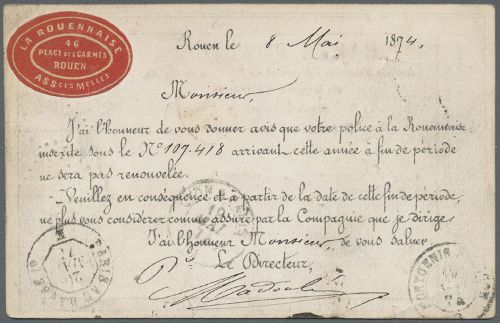 LA ROUENNAISE
46
PLACE DES CARMES
ROUEN
ASSCES MELLES
Rouen le 8 Mai 1874,
Monsieur,
J'ai l'honneur de vous donner avis que votre police à la Rouennaise
inscrite sous le No 107.418 arrivant cette année à fin de période
ne sera pas renouvelée.
Veuillez en conséquence et à partir de la date de cette fin de période,
ne plus vous considérer comme assuré par la Compagnie que je dirige.
J'ai l'honneur Monsieur de vous saluer
Le Directeur,